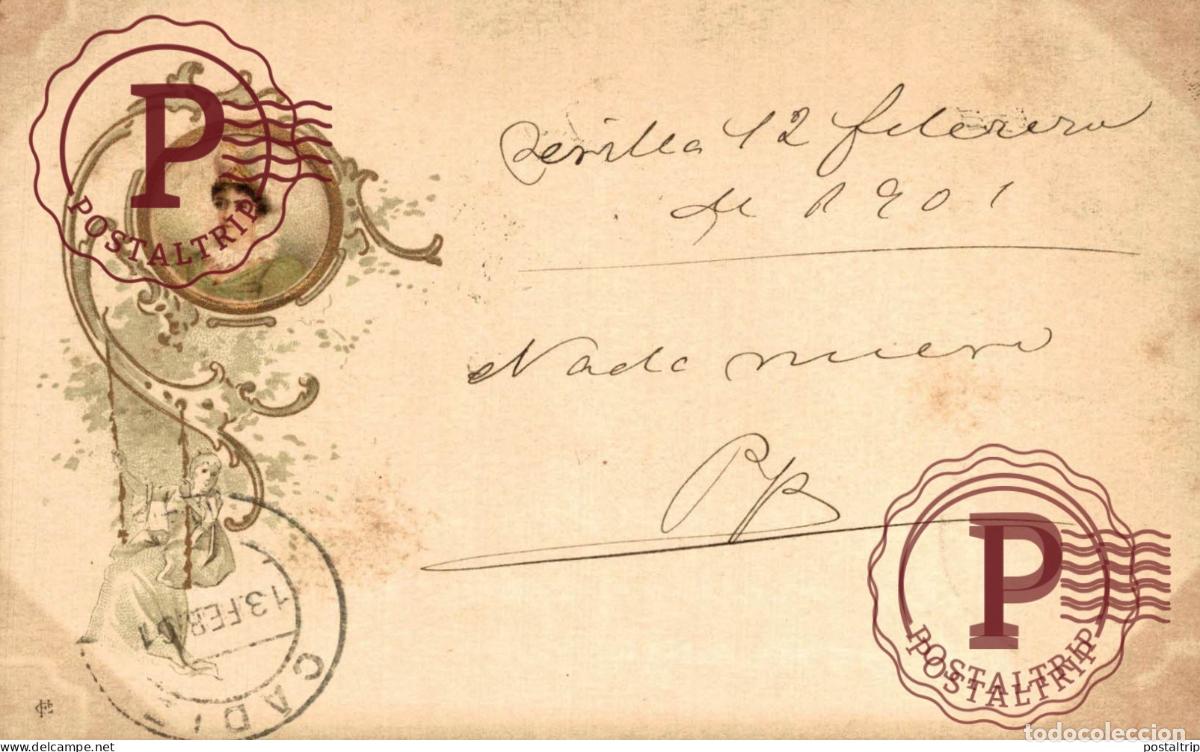 Sevilla 12 febrero
de 1901
Nada nuevo
PB
13.FEB.01
CADI
P
POSTALTRIP
P
POSTALTRIP
POSTALTRIP
todocoleccion
www.delcampe.net
postaltrip